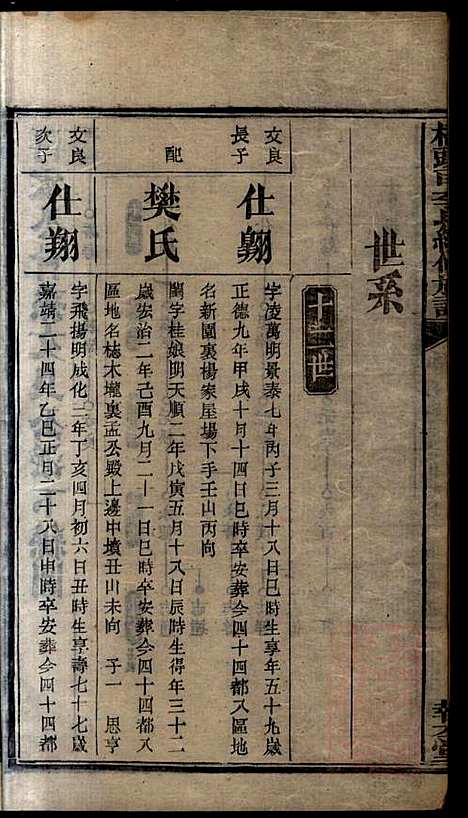 世系
十二世
文良
長子
仕翺
字凌萬明景泰七年丙子三月十八日巳時生享年五十九歲
正德九年甲戌十月十四日巳時卒安葬今四十四都八區地
名新園裏楊家屋場下手壬山丙向
配
樊氏
閨字桂娘明天順二年戊寅五月十八日辰時生得年三十二
歲宏治二年己酉九月二十一日巳時卒安葬今四十四都八
區地名梽木壠裏孟公殿上邊中墳丑山未向 子一 思亨
文良
次子
仕翔
字飛揚明成化三年丁亥四月初六日丑時生享壽七十七歲
嘉靖二十四年乙巳正月二十八日申時卒安葬今四十四都